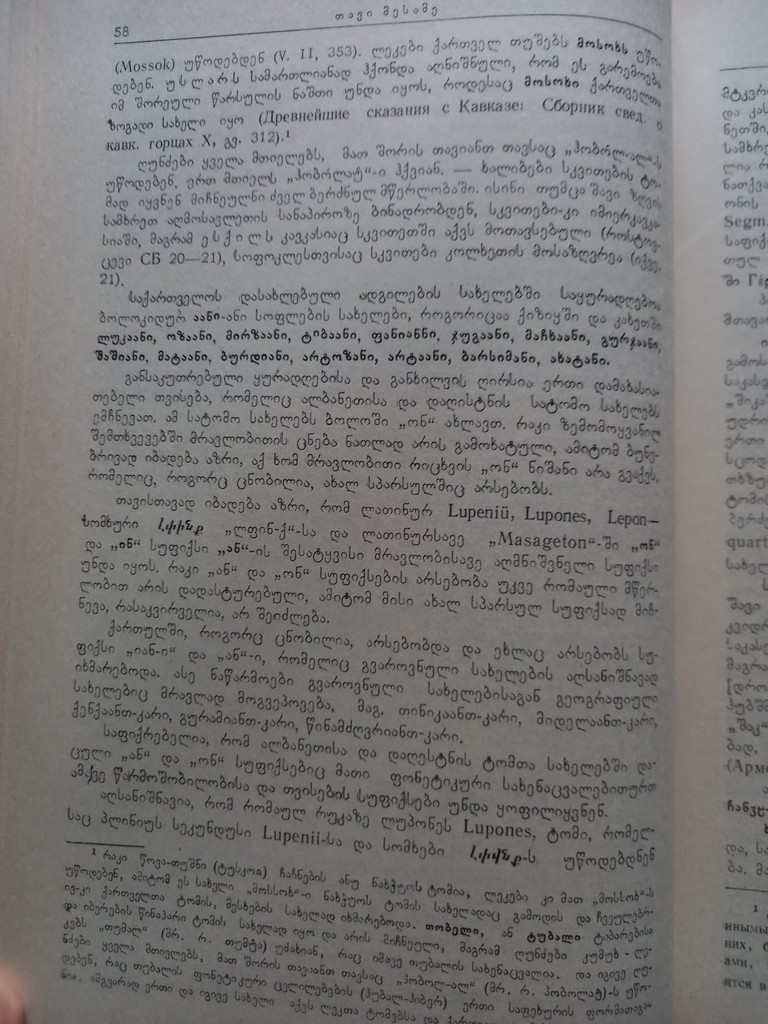 58 თავი მესამე
(Mossok) უწოდებდენ (V. II, 353). ლეკები ქართველ თუშებს მოსოხს უწო-
დებენ. უსლარს სამართლიანად ჰქონდა აღნიშნული, რომ ეს გარემოება
იმ შორეული წარსულის ნაშთი უნდა იყოს, როდესაც მოსოხი ქართველთა
ზოგადი სახელი იყო (Древнейшие сказания с Кавказе: Сборник свед. о
кавк. горцах X, გვ. 312).¹
ღუნძები ყველა მთიელებს, მათ შორის თავიანთ თავსაც „ჰობოლ-ალ“-ს
უწოდებენ, ერთ მთიელს „ჰობოლატ“-ი ჰქვიან. — ხალიბები სკვითების ტო-
მად იყვნენ მიჩნეულნი ძველ ბერძნულ მწერლობაში. ისინი თუმცა შავი ზღვის
სამხრეთ აღმოსავლეთის სანაპიროზე ბინადრობდენ, სკვითები-კი იმიერკავკა-
სიაში, მაგრამ ესქილს კავკასიაც სკვითეთში აქვს მოთავსებული (როსტოვ-
ცევი СБ 20—21), სოფოკლესთვისაც სკვითები კოლხეთის მოსაზღვრეა (იქვე,
21).
საქართველოს დასახლებული ადგილების სახელებში საყურადღებოა
ბოლოკიდურ აანი-ანი სოფლების სახელები, როგორიცაა ქიზიყში და კახეთში
ლუკაანი, ოზაანი, მირზაანი, ტიბაანი, ფანიანნი, ჯუგაანი, მაჩხაანი, გურჯაანი,
შაშიანი, მატაანი, ბურდიანი, არტოზანი, არტაანი, ბარსიმანი, ახატანი.
განსაკუთრებული ყურადღებისა და განხილვის ღირსია ერთი დამახასია-
თებელი თვისება, რომელიც ალბანეთისა და დაღისტნის სატომო სახელებს
ემჩნევათ. ამ სატომო სახელებს ბოლოში „ონ“ ახლავთ. რაკი ზემომოყვანილ
შემთხვევებში მრავლობითის ცნება ნათლად არის გამოხატული, ამიტომ ბუნე-
ბრივად იბადება აზრი, აქ ხომ მრავლობითი რიცხვის „ონ“ ნიშანი არა გვაქვს,
რომელიც, როგორც ცნობილია, ახალ სპარსულშიც არსებობს.
თავისთავად იბადება აზრი, რომ ლათინურ Lupeniü, Lupones, Lepon—
სომხური Լփինք „ლფინ-ქ“-სა და ლათინურსავე „Masageton“-ში „ონ“
და „ინ“ სუფიქსი „ან“-ის შესატყვისი მრავლობისავე აღმნიშვნელი სუფიქსი
უნდა იყოს. რაკი „ან“ და „ონ“ სუფიქსების არსებობა უკვე რომაული მწერ-
ლობით არის დადასტურებული, ამიტომ მისი ახალ სპარსულ სუფიქსად მიჩ-
ნევა, რასაკვირველია, არ შეიძლება.
ქართულში, როგორც ცნობილია, არსებობდა და ეხლაც არსებობს სუ-
ფიქსი „იან-ი“ და „ან“-ი, რომელიც გვაროვნული სახელების აღსანიშნავად
იხმარებოდა. ასე ნაწარმოები გვაროვნული სახელებისაგან გეოგრაფიული
სახელებიც მრავლად მოგვეპოვება, მაგ. თინიკაანთ-კარი, მიდელაანთ-კარი,
ქენქაანთ-კარი, გურამიანთ-კარი, წინამძღვრიანთ-კარი.
საფიქრებელია, რომ ალბანეთისა და დაღესტნის ტომთა სახელებში და-
ცული „ან“ და „ონ“ სუფიქსებიც მათი ფონეტიკური სახენაცვალებითურთ
ამავე წარმოშობილობისა და თვისების სუფიქსები უნდა ყოფილიყვნენ.
აღსანიშნავია, რომ რომაულ რუკაზე ლუპონეს Lupones, ტომი, რომელ-
საც პლინიუს სეკუნდუსი Lupenii-სა და სომხები Լփինք-ს უწოდებდნენ
¹ რაკი წოვა-თუშნი (ტუსკოა) ჩაჩნების ანუ ნახჭუოს ტომია, ლეკები კი მათ „მოსსოხ“-ს
უწოდებენ, ამიტომ ეს სახელი „მოსსოხ“-ი ნახჭუოს ტომის სახელადაც გამოდის და ჩვეულებრ-
ივ-კი ქართველთა ტომის, მესხების სახელად იხმარებოდა. თობელი, ან ტუბალი ტიბარებისა
და იბერების წინაპარი ტომის სახელად იყო და არის მიჩნეული, მაგრამ ღუნძები კუმუხ-ლე-
კებს „თუმალ“ (მრ. რ. თუმტა) უძახიან, რაც იმავე თუბალის სახენაცვალია. და იგივე ღუ-
ნძები ყველა მთიელებს, მათ შორის თავიანთ თავსაც „ჰობოლ-ალ“ (მრ. რ. ჰობოლატ)-ს უწო-
დებენ, რაც თუბალის ფონეტიკური ცვლილების (ჰუბალ-ჰიბერ) ერთი საფეხურის ფორმათაგა-
ნია. ამგვარად ერთი და იგივე სახელი აქვს ლეკთა ტომებსა და